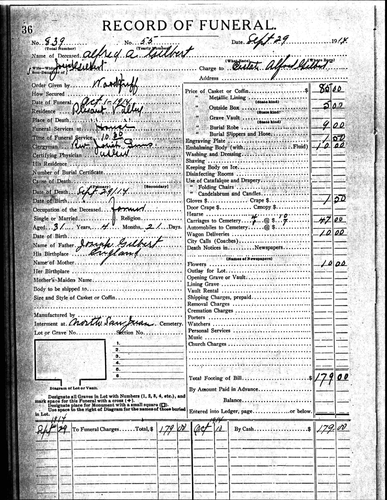 36
RECORD OF FUNERAL.
No. 839 No. 55 Date, Sept 29 1914
(Total Number) (Yearly Number)
Name of Deceased, Alfrey A. Gilbert
Charge to Estate Alfred Gilbert
Address
Order Given by Woodruff
How Secured
Date of Funeral Oct 1-1914
Residence Pleasant Valley
Place of Death
Funeral Services at Home
Time of Funeral Service, 10.30
Clergyman Rev
Certifying Physician
His Residence
Number of Burial Certificate
Cause of Death
(Secondary)
Date of Death Sept 29/14
Occupation of the Deceased Farmer
Single or Married Religion
Aged 31 Years 4 Months 21 Days
Date of Birth
Name of Father Joseph Gilbert
His Birthplace England
Name of Mother
Her Birthplace
Mother's Maiden Name
Body to be shipped to
Size and Style of Casket or Coffin
Manufactured by
Interment at North San Juan Cemetery.
Lot or Grave No. Section No.
1
2
3
4
5
Diagram of Lot or Vault.
Designate all Graves in Lot with Numbers (1, 2, 3, 4, etc.), and
mark space for this Funeral with a cross (+)
Designate place for Monument with a small square (□)
Use space to the right of Diagram for the names of those buried
in Lot.
Price of Casket or Coffin $ 85 00
" Metallic Lining
(State kind)
" Outside Box 5 00
(State kind)
" Grave Vault
(State kind)
" Burial Robe 9 00
" Burial Slippers and Hose
Engraving Plate 1 50
Embalming Body (with Fluid) 10 00
Washing and Dressing
Shaving
Keeping Body on Ice
Disinfecting Rooms
Use of Catafalque and Drapery
" Folding Chairs
" Candelabrum and Candles
Gloves $ Crape $ 1 50
Door Crape $ Canopy $
Hearse
Carriages to Cemetery 47 00
Automobiles to Cemetery @ $
Wagon Deliveries 10 00
City Calls (Coaches)
Death Notices in Newspapers
(Names of Newspapers)
Flowers 10 00
Outlay for Lot
Opening Grave
Lining Grave
Vault Rental
Shipping Charges, prepaid
Removal Charges
Cremation Charges
Porters
Watchers
Personal Services
Music
Church Charges
Total Footing of Bill $ 179 00
By Amount Paid in Advance
Balance
Entered into Ledger, page or below.
1914
Sept 29 To Funeral Charges $ 179 00 Oct 12 By Cash $ 179.00